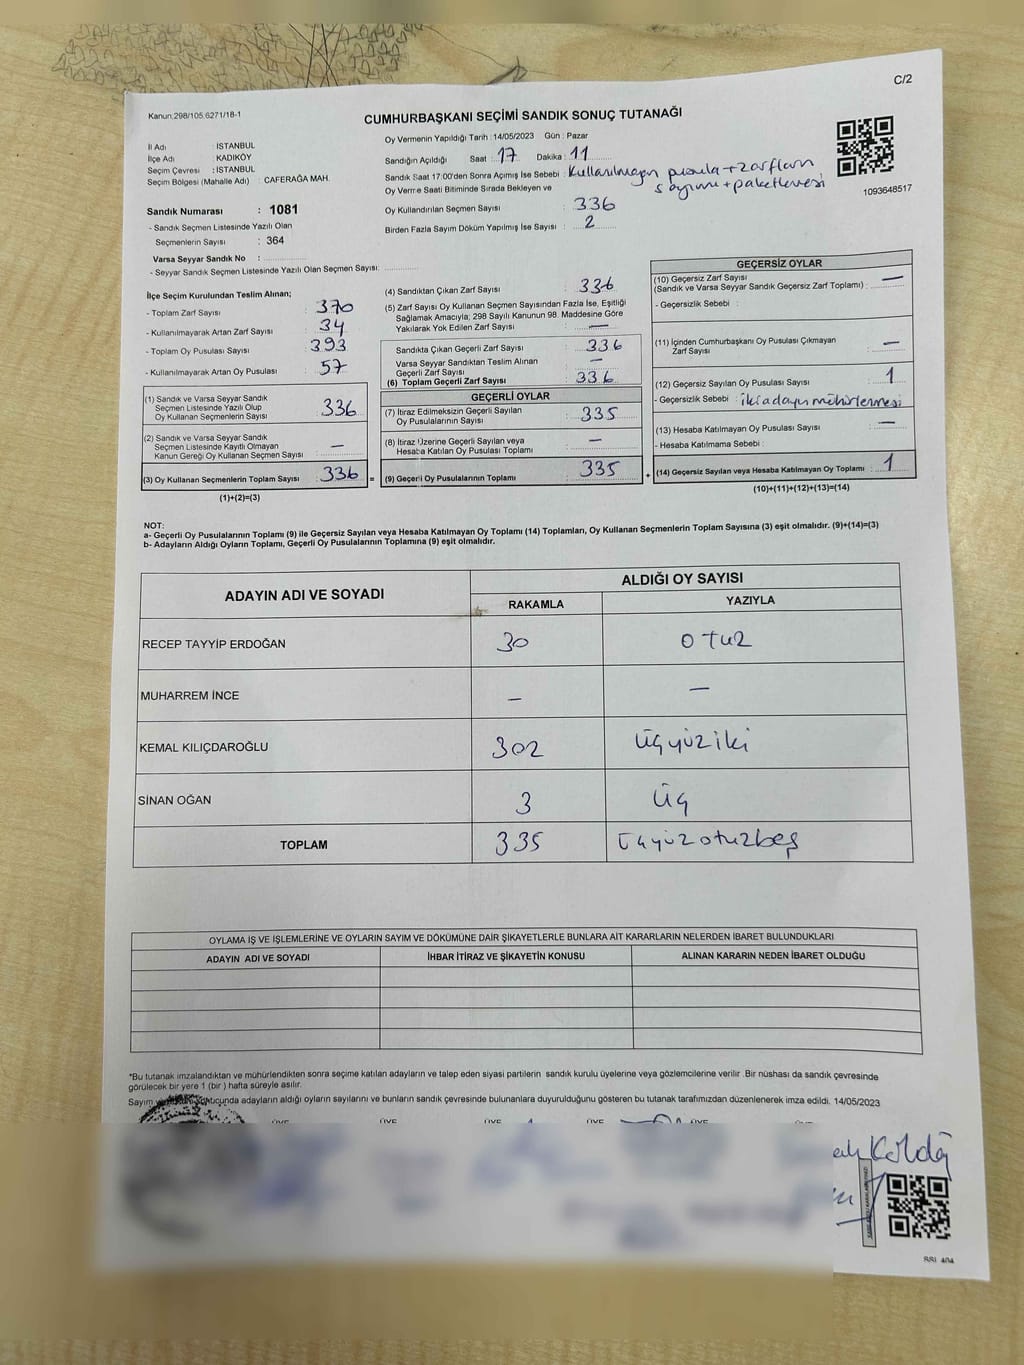 C/2
Kanun:298/105,6271/18-1
CUMHURBAŞKANI SEÇİMİ SANDIK SONUÇ TUTANAĞI
İl Adı : İSTANBUL
İlçe Adı : KADIKÖY
Seçim Çevresi : İSTANBUL
Seçim Bölgesi (Mahalle Adı) : CAFERAĞA MAH.
Sandık Numarası : 1081
- Sandık Seçmen Listesinde Yazılı Olan
Seçmenlerin Sayısı : 364
Varsa Seyyar Sandık No :
- Seyyar Sandık Seçmen Listesinde Yazılı Olan Seçmen Sayısı:
Oy Vermenin Yapıldığı Tarih : 14/05/2023 Gün : Pazar
Sandığın Açıldığı Saat : 17 Dakika : 11
Sandık Saat 17:00'den Sonra Açımış İse Sebebi : Kullanılmayan pusula + zarfların
sayımı + paketlemesi
Oy Verme Saati Bitiminde Sırada Bekleyen ve
Oy Kullandırılan Seçmen Sayısı : 336
Birden Fazla Sayım Döküm Yapılmış İse Sayısı : 2
1093648517
İlçe Seçim Kurulundan Teslim Alınan;
- Toplam Zarf Sayısı : 370
- Kullanılmayarak Artan Zarf Sayısı : 34
- Toplam Oy Pusulası Sayısı : 393
- Kullanılmayarak Artan Oy Pusulası : 57
(1) Sandık ve Varsa Seyyar Sandık
Seçmen Listesinde Yazılı Olup
Oy Kullanan Seçmenlerin Sayısı : 336
(2) Sandık ve Varsa Seyyar Sandık
Seçmen Listesinde Kayıtlı Olmayan
Kanun Gereği Oy Kullanan Seçmen Sayısı : —
(3) Oy Kullanan Seçmenlerin Toplam Sayısı : 336 =
(1)+(2)=(3)
(4) Sandıktan Çıkan Zarf Sayısı : 336
(5) Zarf Sayısı Oy Kullanan Seçmen Sayısından Fazla İse, Eşitliği
Sağlamak Amacıyla; 298 Sayılı Kanunun 98. Maddesine Göre
Yakılarak Yok Edilen Zarf Sayısı : —
Sandıkta Çıkan Geçerli Zarf Sayısı : 336
Varsa Seyyar Sandıktan Teslim Alınan
Geçerli Zarf Sayısı : —
(6) Toplam Geçerli Zarf Sayısı : 336
GEÇERLİ OYLAR
(7) İtiraz Edilmeksizin Geçerli Sayılan
Oy Pusulalarının Sayısı : 335
(8) İtiraz Üzerine Geçerli Sayılan veya
Hesaba Katılan Oy Pusulası Toplamı : —
(9) Geçerli Oy Pusulalarının Toplamı : 335 +
GEÇERSİZ OYLAR
(10) Geçersiz Zarf Sayısı
(Sandık ve Varsa Seyyar Sandık Geçersiz Zarf Toplamı) : —
- Geçersizlik Sebebi :
(11) İçinden Cumhurbaşkanı Oy Pusulası Çıkmayan
Zarf Sayısı : —
(12) Geçersiz Sayılan Oy Pusulası Sayısı : 1
- Geçersizlik Sebebi : iki adayın mühürlenmesi
(13) Hesaba Katılmayan Oy Pusulası Sayısı : —
- Hesaba Katılmama Sebebi :
(14) Geçersiz Sayılan veya Hesaba Katılmayan Oy Toplamı : 1
(10)+(11)+(12)+(13)=(14)
NOT:
a- Geçerli Oy Pusulalarının Toplamı (9) ile Geçersiz Sayılan veya Hesaba Katılmayan Oy Toplamı (14) Toplamları, Oy Kullanan Seçmenlerin Toplam Sayısına (3) eşit olmalıdır. (9)+(14)=(3)
b- Adayların Aldığı Oyların Toplamı, Geçerli Oy Pusulalarının Toplamına (9) eşit olmalıdır.
ADAYIN ADI VE SOYADI ALDIĞI OY SAYISI
RAKAMLA YAZIYLA
RECEP TAYYİP ERDOĞAN 30 otuz
MUHARREM İNCE — —
KEMAL KILIÇDAROĞLU 302 üçyüziki
SİNAN OĞAN 3 üç
TOPLAM 335 üçyüzotuzbeş
OYLAMA İŞ VE İŞLEMLERİNE VE OYLARIN SAYIM VE DÖKÜMÜNE DAİR ŞİKAYETLERLE BUNLARA AİT KARARLARIN NELERDEN İBARET BULUNDUKLARI
ADAYIN ADI VE SOYADI İHBAR İTİRAZ VE ŞİKAYETİN KONUSU ALINAN KARARIN NEDEN İBARET OLDUĞU
*Bu tutanak imzalandıktan ve mühürlendikten sonra seçime katılan adayların ve talep eden siyasi partilerin sandık kurulu üyelerine veya gözlemcilerine verilir .Bir nüshası da sandık çevresinde
görülecek bir yere 1 (bir ) hafta süreyle asılır.
Sayım adayların aldığı oyların sayılarını ve bunların sandık çevresinde bulunanlara duyurulduğunu gösteren bu tutanak tarafımızdan düzenlenerek imza edildi. 14/05/2023
ÜYE ÜYE ÜYE ÜYE ÜYE